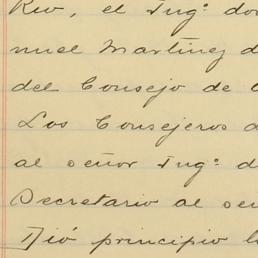 Rev, el Ingº do
nuel Martínez d
del Consejo de
Los Consejeros
al señor Ingº d
Secretario al se
Dió principio l